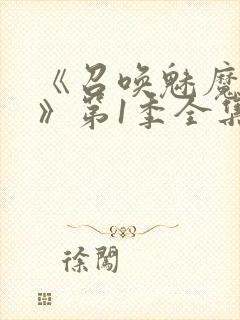 《召唤魅魔
》第1季全集
徐闯